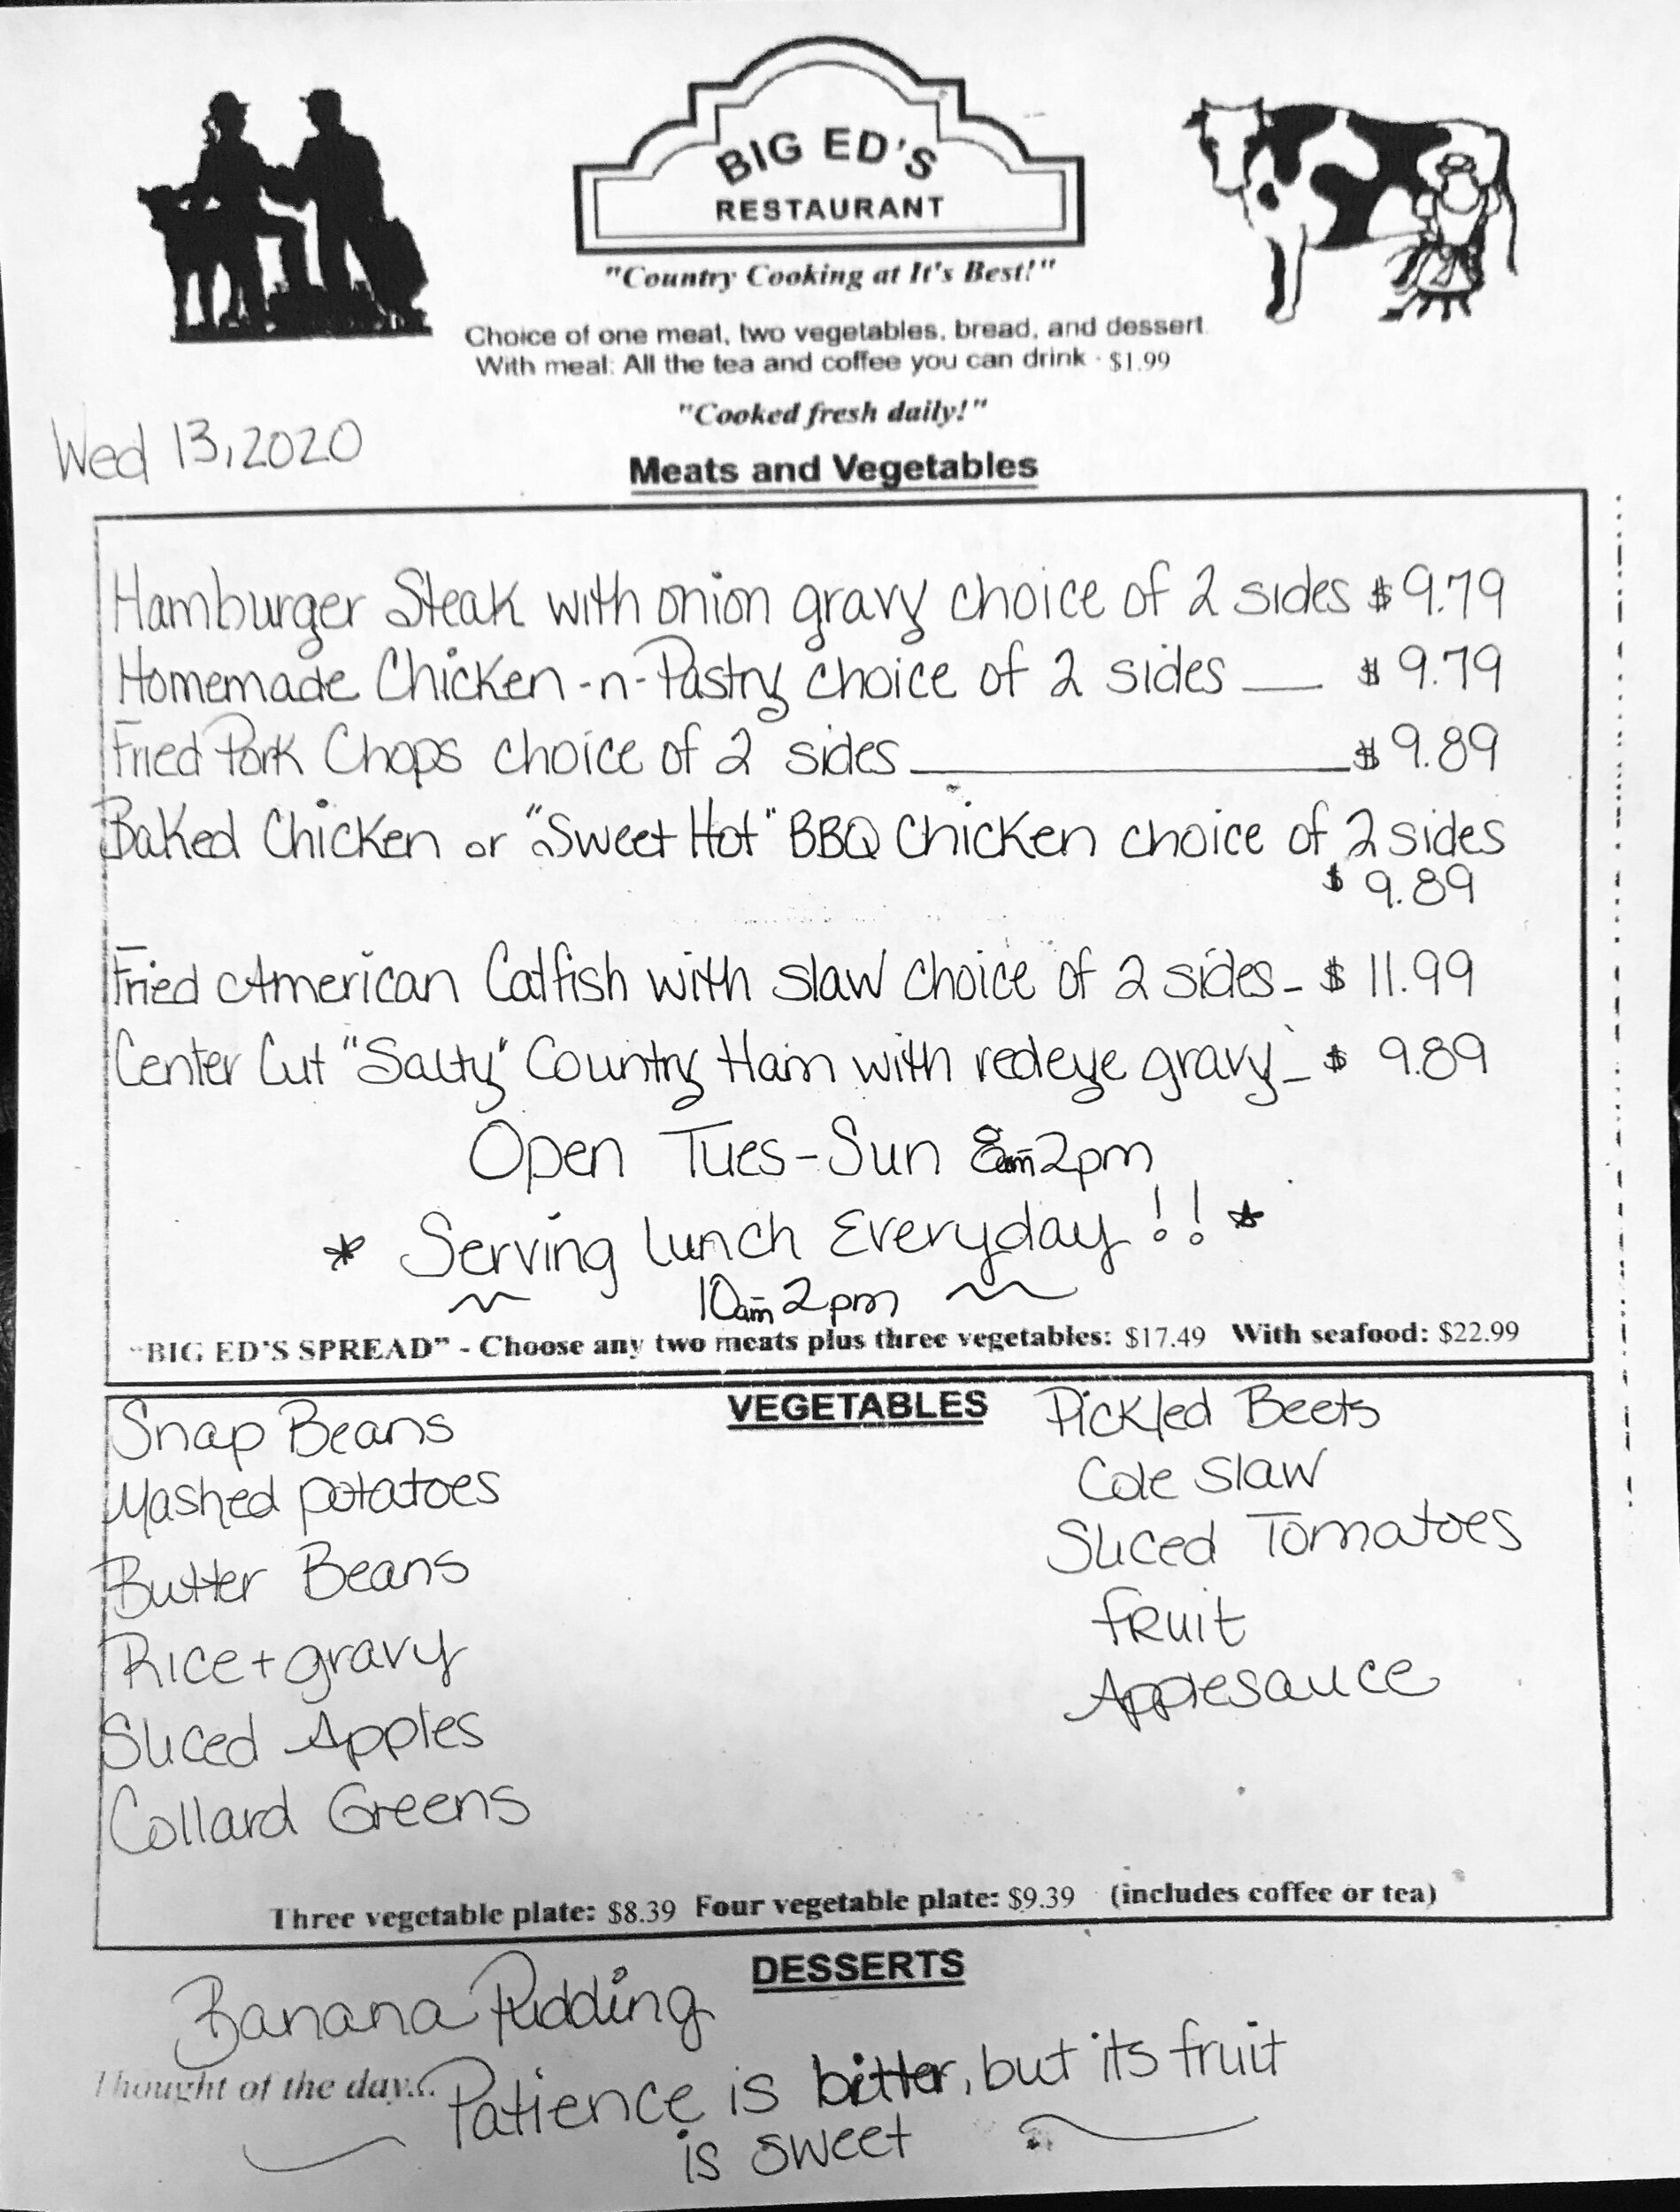 BIG ED'S
RESTAURANT
"Country Cooking at It's Best!"
Choice of one meat, two vegetables, bread, and dessert.
With meal: All the tea and coffee you can drink - $1.99
"Cooked fresh daily!"
Wed 13, 2020
Meats and Vegetables
Hamburger Steak with onion gravy choice of 2 sides $9.79
Homemade Chicken-n-Pastry choice of 2 sides __ $9.79
Fried Pork Chops choice of 2 sides ________ $9.89
Baked Chicken or "Sweet Hot" BBQ Chicken choice of 2 sides
$9.89
Fried American Catfish with slaw choice of 2 sides - $11.99
Center Cut "Salty" Country Ham with redeye gravy - $9.89
Open Tues-Sun 8am 2pm
* Serving Lunch Everyday!! *
10am 2pm
"BIG ED'S SPREAD" - Choose any two meats plus three vegetables: $17.49 With seafood: $22.99
VEGETABLES
Snap Beans
Mashed potatoes
Butter Beans
Rice + gravy
Sliced Apples
Collard Greens
Pickled Beets
Cole Slaw
Sliced Tomatoes
fruit
Applesauce
Three vegetable plate: $8.39 Four vegetable plate: $9.39 (includes coffee or tea)
DESSERTS
Banana Pudding
Thought of the day... Patience is bitter, but its fruit
is sweet